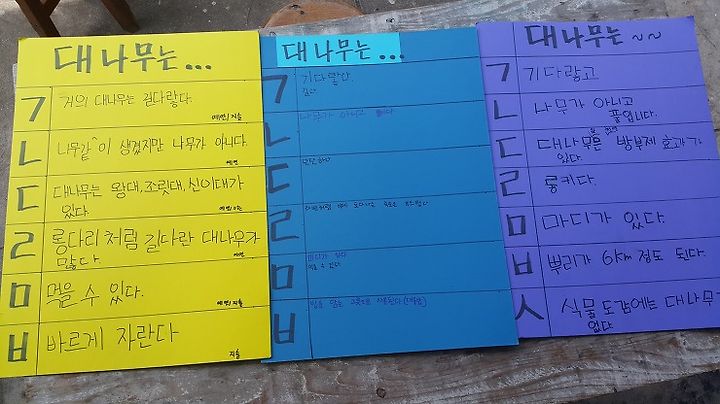 대나무는...
ㄱ 거의 대나무는 길다랗다.
예민/지솔
ㄴ 나무같이 생겼지만 나무가 아니다.
ㄷ 대나무는 왕대, 조릿대, 신이대가
있다.
ㄹ 롱다리처럼 길다란 대나무가
많다.
ㅁ 먹을 수 있다.
ㅂ 바르게 자란다
지솔
대나무는...
ㄱ 기다랗다.
길다
ㄴ 나무가 아니고
ㄷ 단단하다
ㄹ
ㅁ 마디가 있다
먹을 수 있다
ㅂ
대나무는~~
ㄱ 기다랗고
ㄴ 나무가 아니고
풀입니다.
ㄷ 대나무 방부제 효과가
있다.
ㄹ 롱키다.
ㅁ 마디가 있다.
ㅂ 뿌리가 6km 정도 된다.
ㅅ 식물도감에는 대나무
없다.